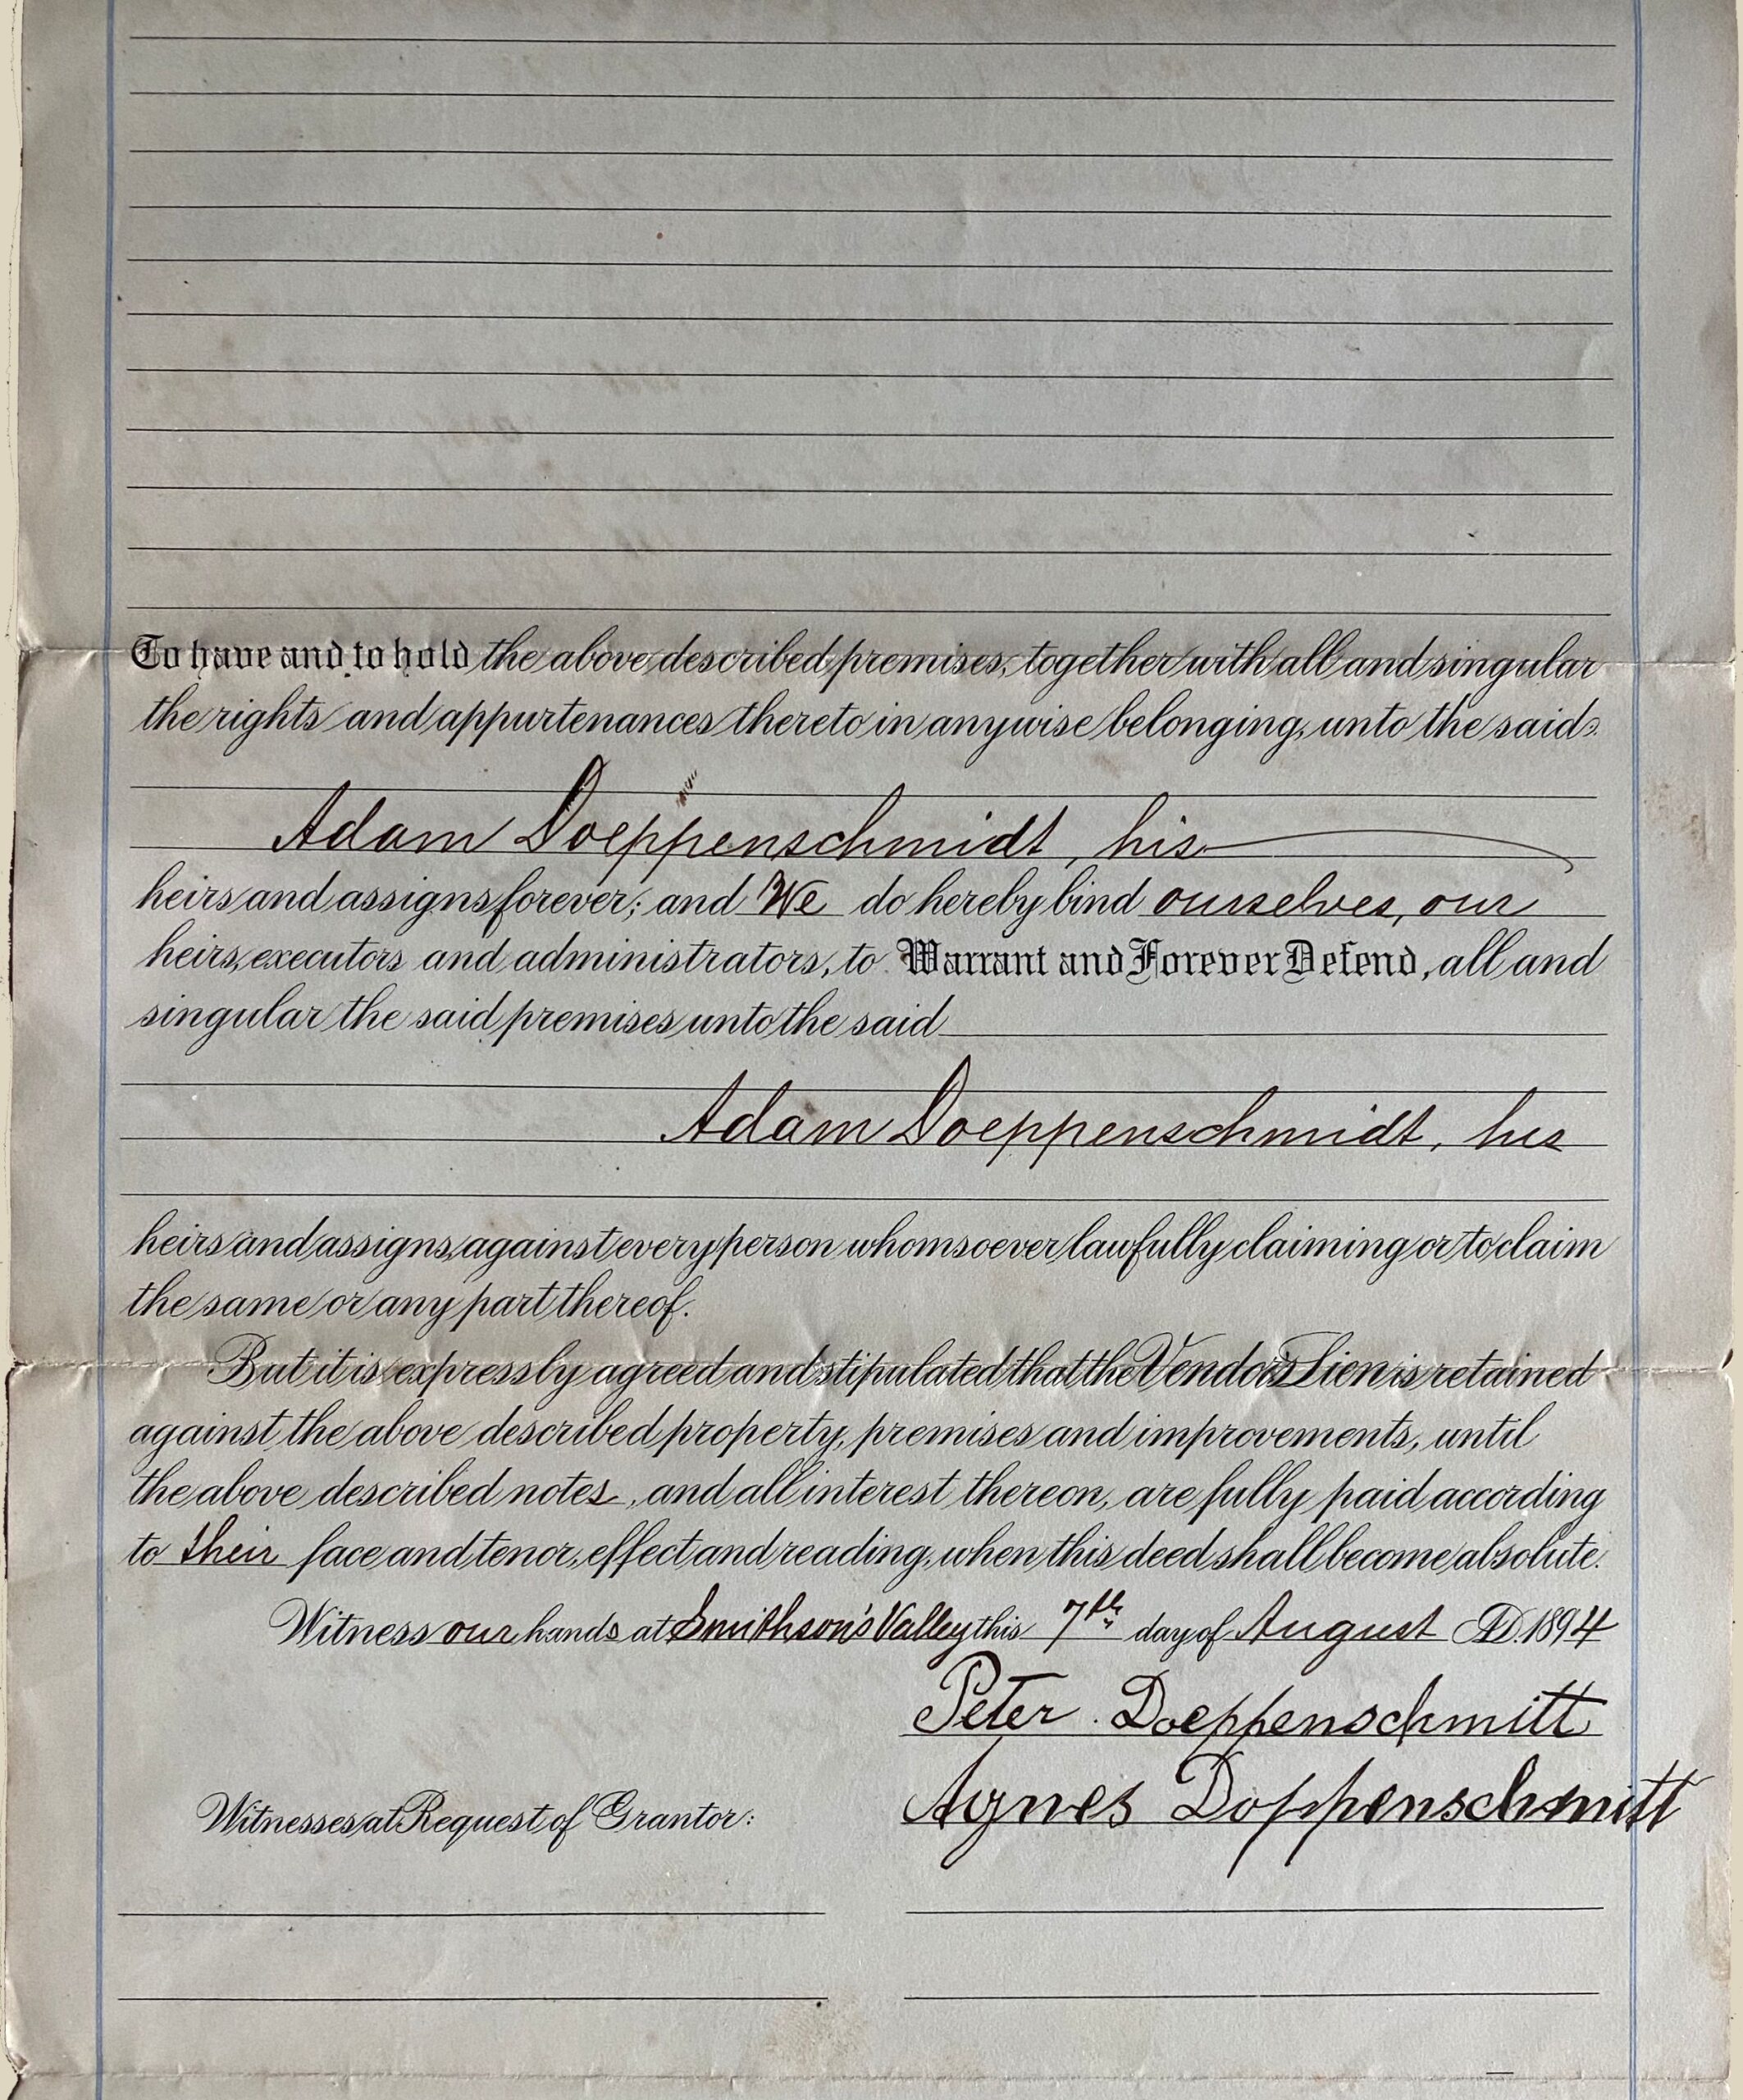 To have and to hold the above described premises, together with all and singular
the rights and appurtenances thereto in anywise belonging, unto the said
Adam Doeppenschmidt, his
heirs and assigns forever; and We do hereby bind ourselves, our
heirs, executors and administrators, to Warrant and Forever Defend, all and
singular the said premises unto the said
Adam Doeppenschmidt, his
heirs and assigns, against every person whomsoever lawfully claiming or to claim
the same or any part thereof.
But it is expressly agreed and stipulated that the Vendor's Lien is retained
against the above described property, premises and improvements, until
the above described notes, and all interest thereon, are fully paid according
to their face and tenor, effect and reading, when this deed shall become absolute.
Witness our hands at Smithson's Valley this 7th day of August A.D. 1894
Peter Doeppenschmitt
Agnes Doppenschmitt
Witnesses at Request of Grantor: